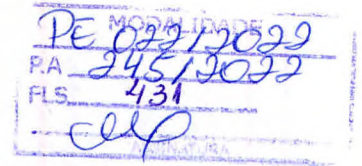 MODALIDADE
PE 022/2022
P.A 245/2022
FLS. 431
ASSINATURA